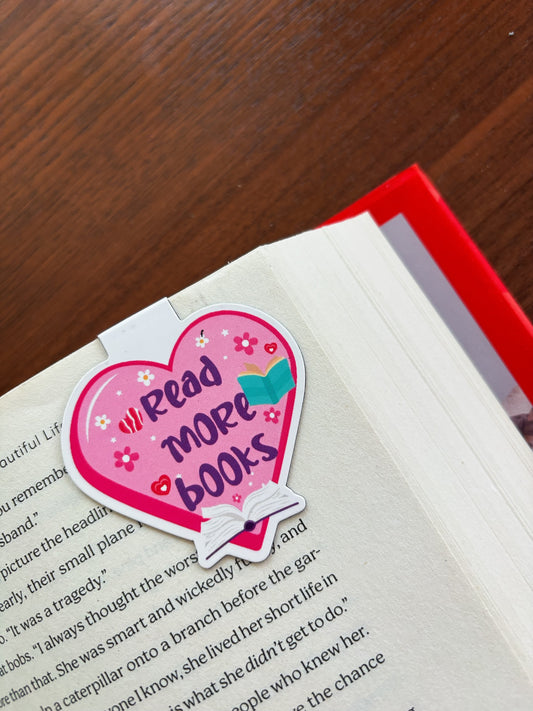 Read
MORE
books
autiful Life
ou remembe
sband."
picture the headlin
early, their small plane
o. "It was a tragedy."
at bobs. "I always thought the wors
ore than that. She was smart and wickedly funny, and
a caterpillar onto a branch before the gar-
one I know, she lived her short life in
is what she didn't get to do."
people who knew her.
the chance